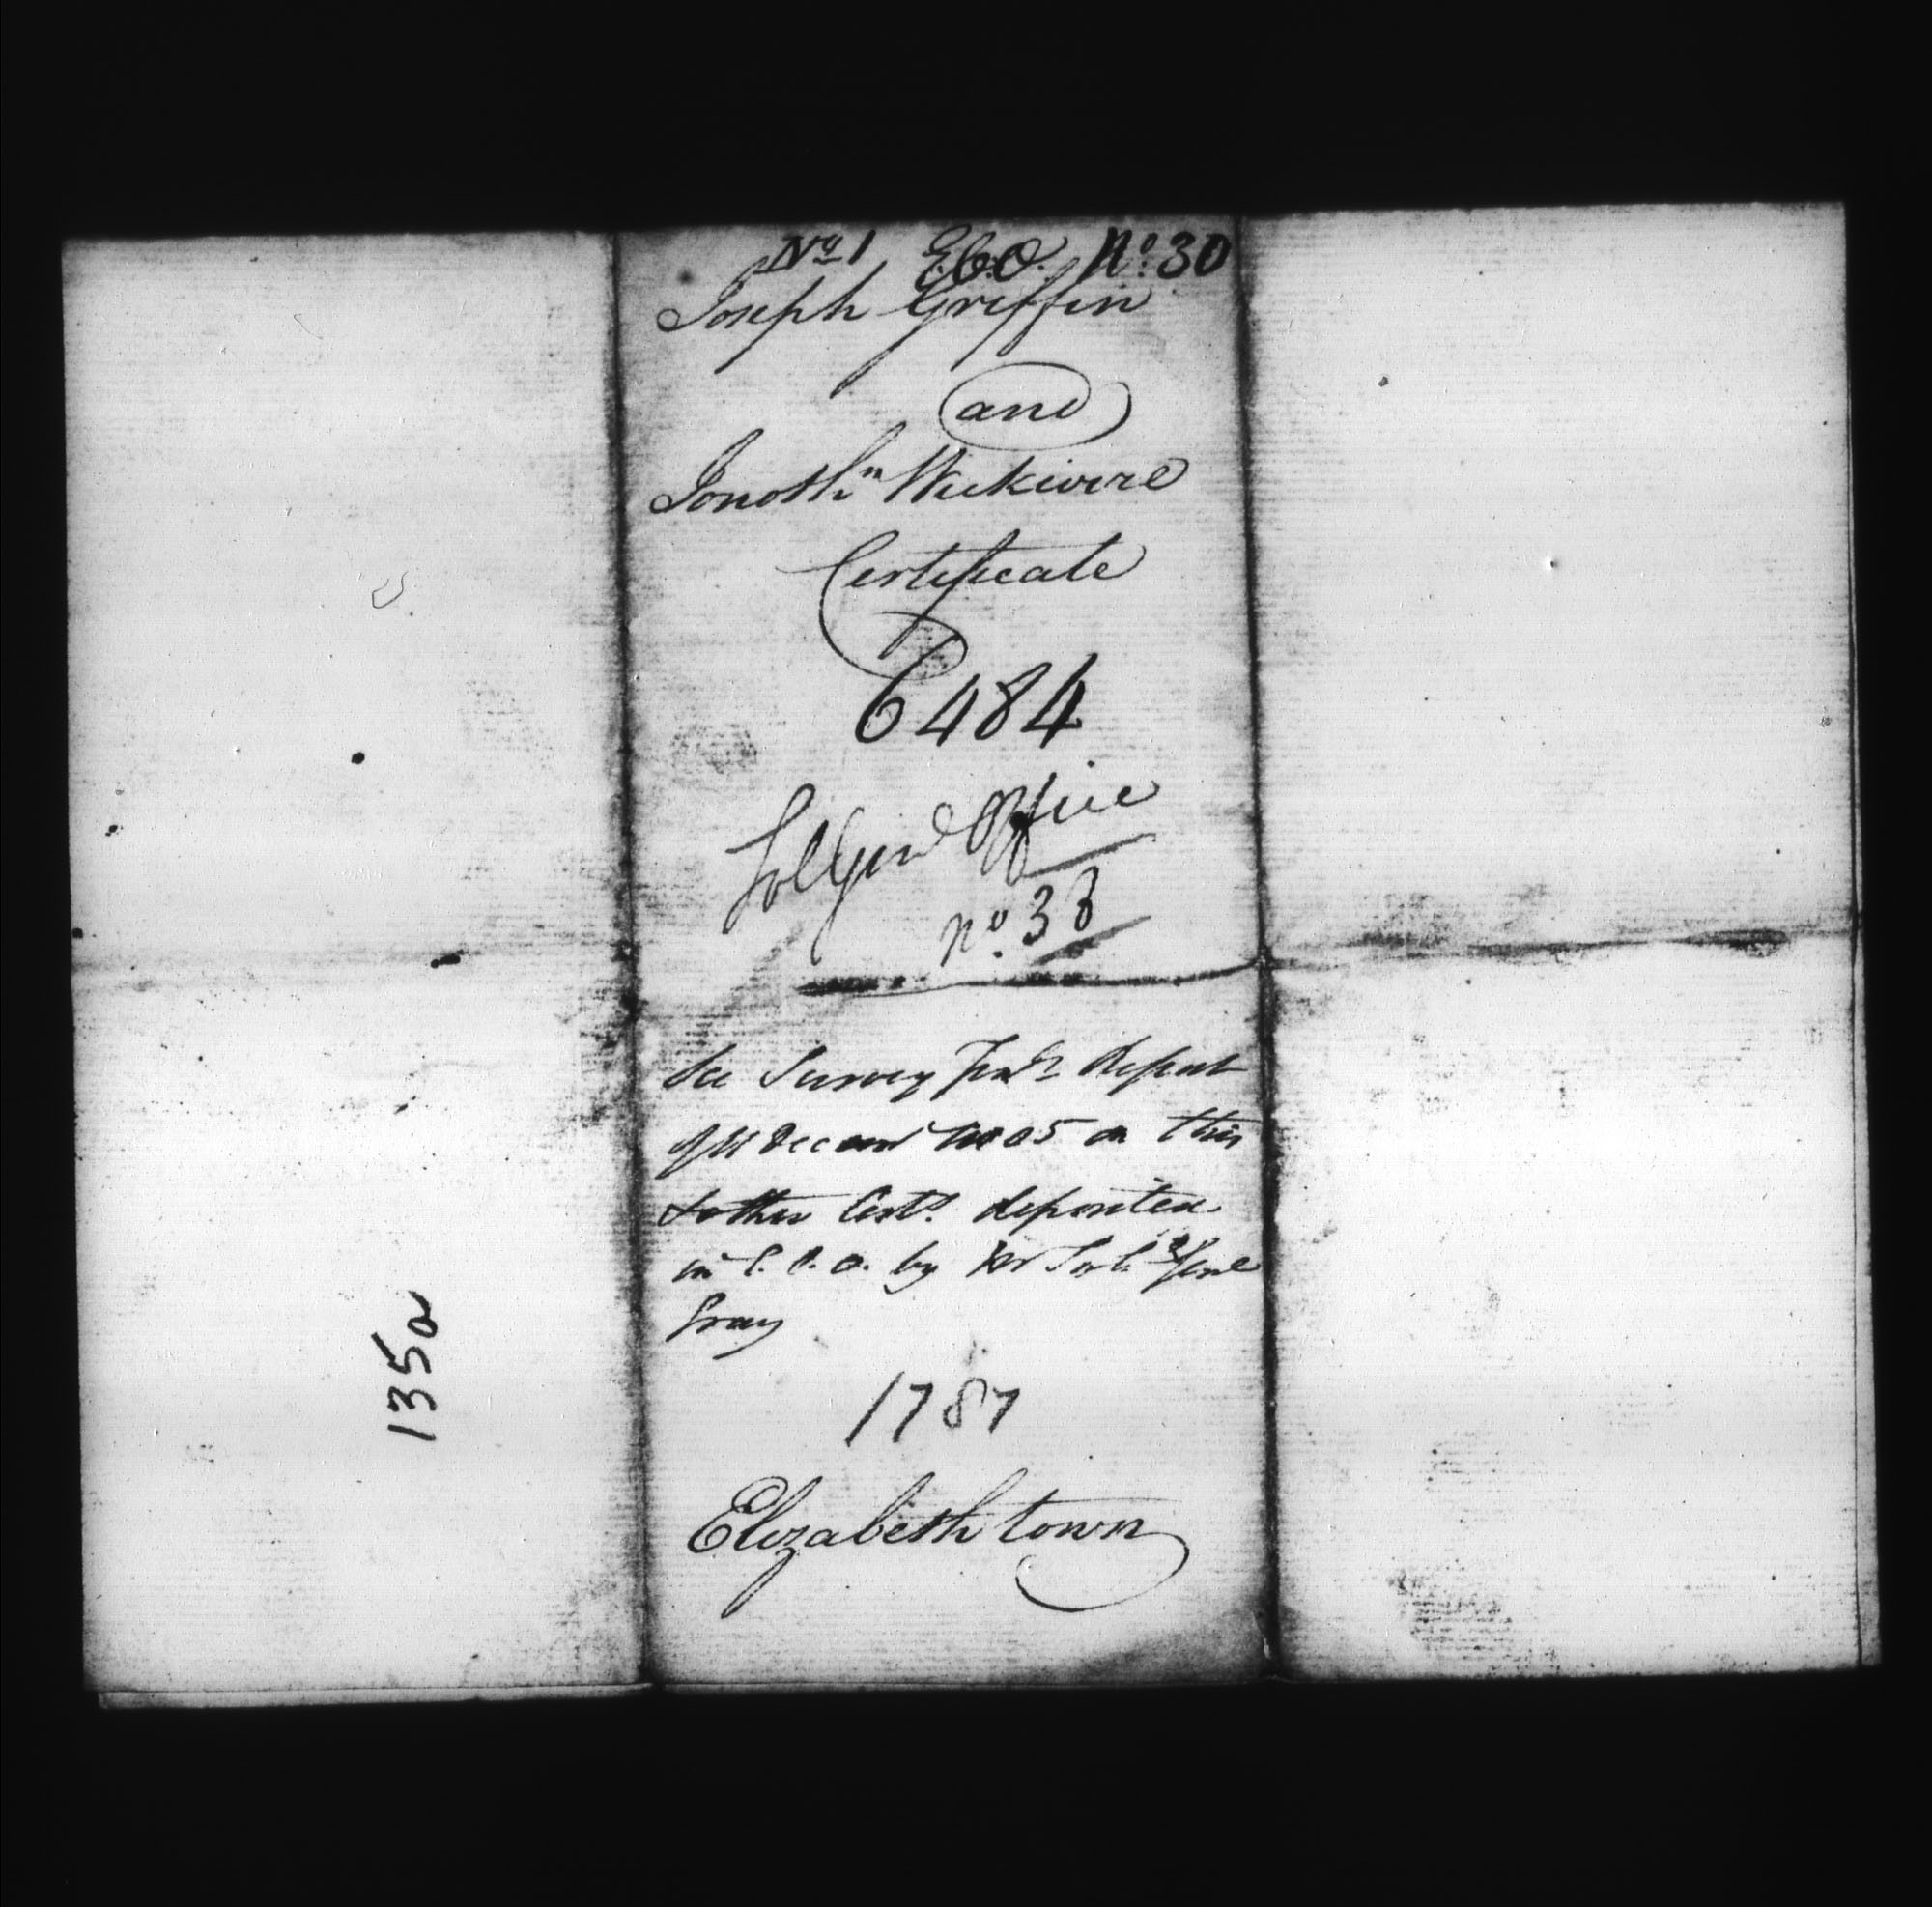 No 1 E.C.O. No. 30
Joseph Griffin
and
Jonothn Wickwire
Certificate
6484
Sol Genl Office
no. 38
See Survey Genls Report
of 11 Decem 1805 on this
& other Certs. deposited
in E.C.O. by Mr Solr Genl
Gray
1787
Elizabeth town
135a